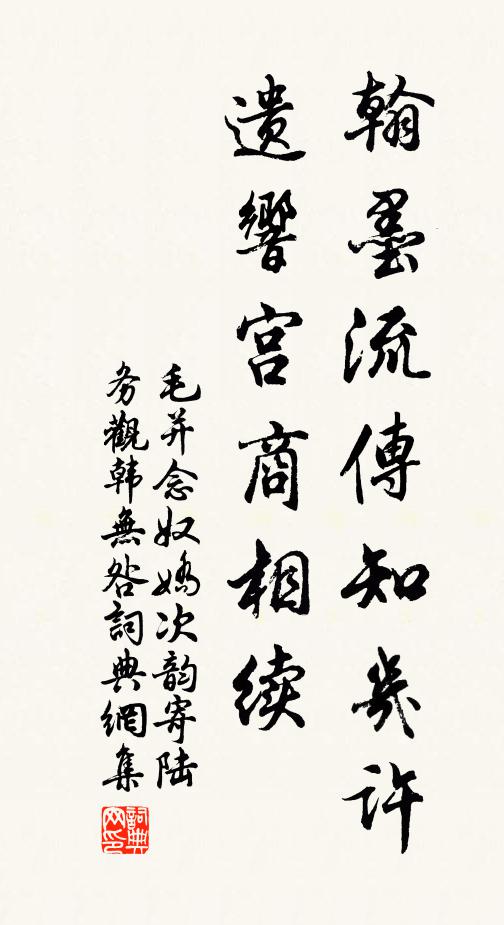 翰墨流傳知幾許
遺響宮商相續
毛幵念奴嬌次韵寄陸
务觀韩無咎詞典網集
詞典网印